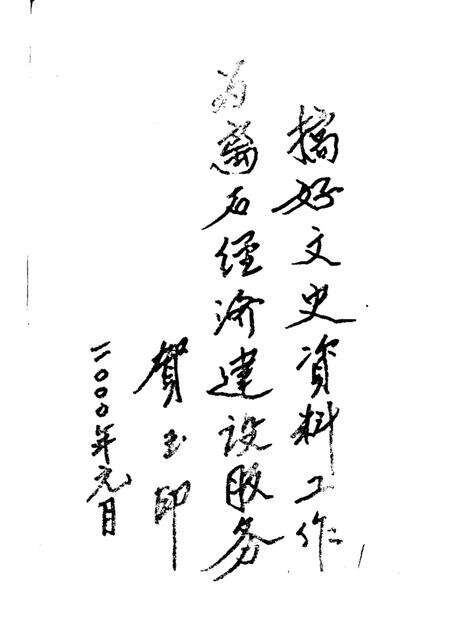 搞好文史資料工作
为离石經济建设服务
賀玉印
二〇〇〇年元月